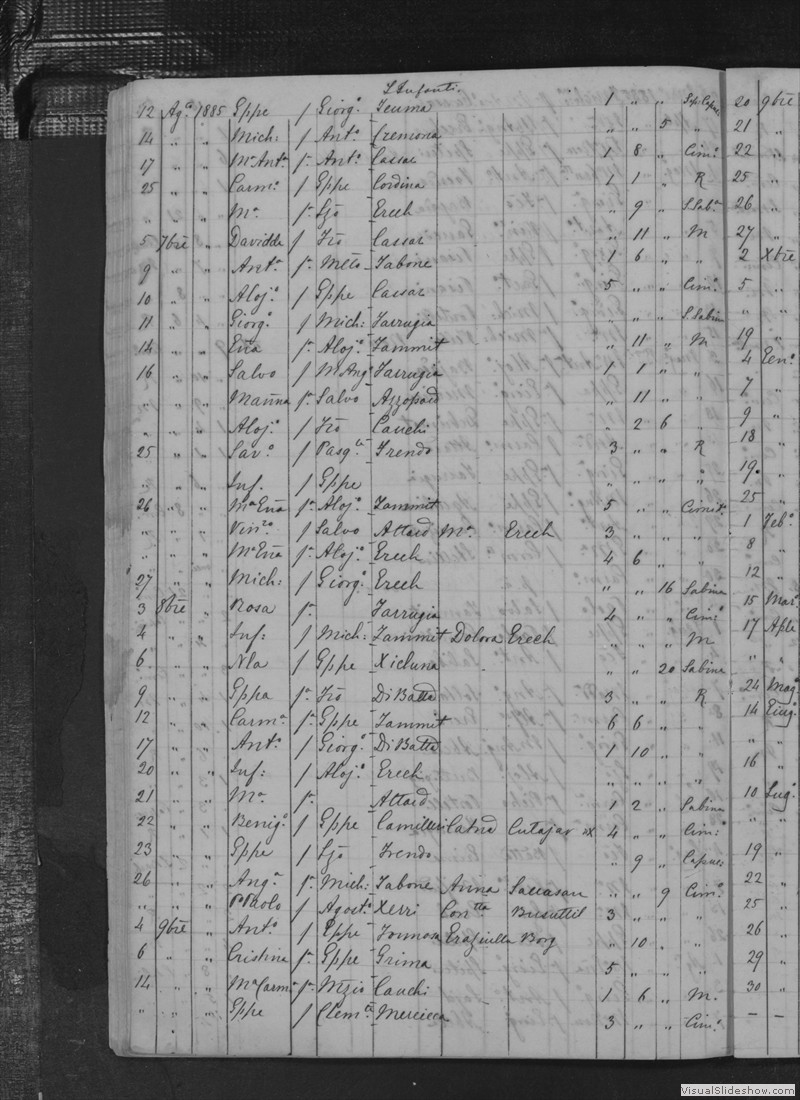 L'Infanti.
12 Agº 1885 Gppe f Giorgº Teuma 1 " " Sep Capuc: 20 9bre
14 " " Mich: f Antº Cremona " " 5 " 21 "
17 " " Mª Antª fª Antº Cassar 1 8 " Cimº 22 "
25 " " Carmº f Gppe Cordina 1 1 " R 25 "
" " " Mª f Ljo Grech " 9 " S. Sabª 26 "
5 7bre " Davidde f Fro Cassar " 11 " M 27 "
9 " " Antª fª Mttº Tabone 1 6 " " 2 Xbre
10 " " Alojº f Gppe Cassar 5 " " Cimº 5 "
11 " " Giorgº f Mich: Farrugia " " " S. Sabina " "
14 " " Gña fª Alojº Zammit " 11 " M 19 "
16 " " Salvo f M Angº Farrugia 1 1 " " 4 Genº
" " " Marina fª Salvo Azzopard " 11 " " 7 "
" " " Alojº f Fro Cauchi " 2 6 " 9 "
25 " " Savº f Pasqle Trendo 3 " " R 18 "
" " " Inf: f Gppe " " " " 19. "
26 " " Mª Gña fª Alojº Zammit 5 " " Cimit. 25 "
" " " Vinzo f Salvo Attard Mª Grech 3 " " " 1 Febº
" " " Mª Gña fª Alojº Grech 4 6 " " 8 "
27 " " Mich: f Giorgº Grech " " 16 Sabina 12 "
3 8bre " Rosa fª Farrugia 4 " " Cimº 15 Mar
4 " " Inf: f Mich: Zammit Dolora Grech " " " M 17 Aple
6 " " Nla f Gppe Xicluna " " 20 Sabina " "
9 " " Gppa fª Fro DiBatta 3 " " R 24 Magº
12 " " Carmª fª Gppe Zammit 6 6 " " 14 Giugº
17 " " Antº f Giorgº DiBatta 1 10 " " " "
20 " " Inf: f Alojº Grech " " " " 16 "
21 " " Mª fª Attard 1 2 " Sabina 10 Lugº
22 " " Benigº f Gppe Camilleri Catnd Cutajar x 4 " " Cim: " "
23 " " Gppe f Ljo Trendo " 9 " Capuc: 19 "
26 " " Angª fª Mich: Tabone Anna " " 9 Cimº 22 "
" " " Pº Paolo f Agostº Xerri Contta Busuttil 3 " " " 25 "
4 9bre " Antº f Gppe Formosa Graziella Borg " 10 " " 26 "
6 " " Cristina fª Gppe Grima 5 " " " 29 "
14 " " Mª Carmª fª Nzio Cauchi 1 6 " M. 30 "
" " " Gppe f Clemte Mercieca 3 " " Cimº - -
VisualSlideshow.com